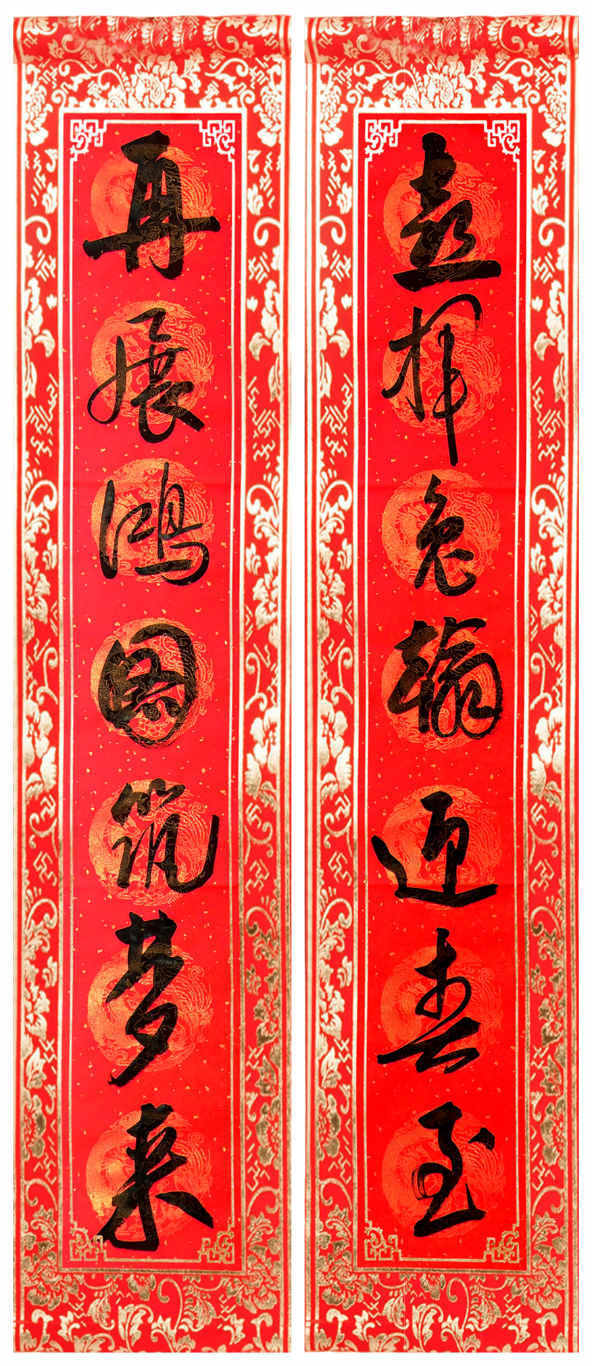 喜挥兔翰迎春至
再展鸿图筑梦来